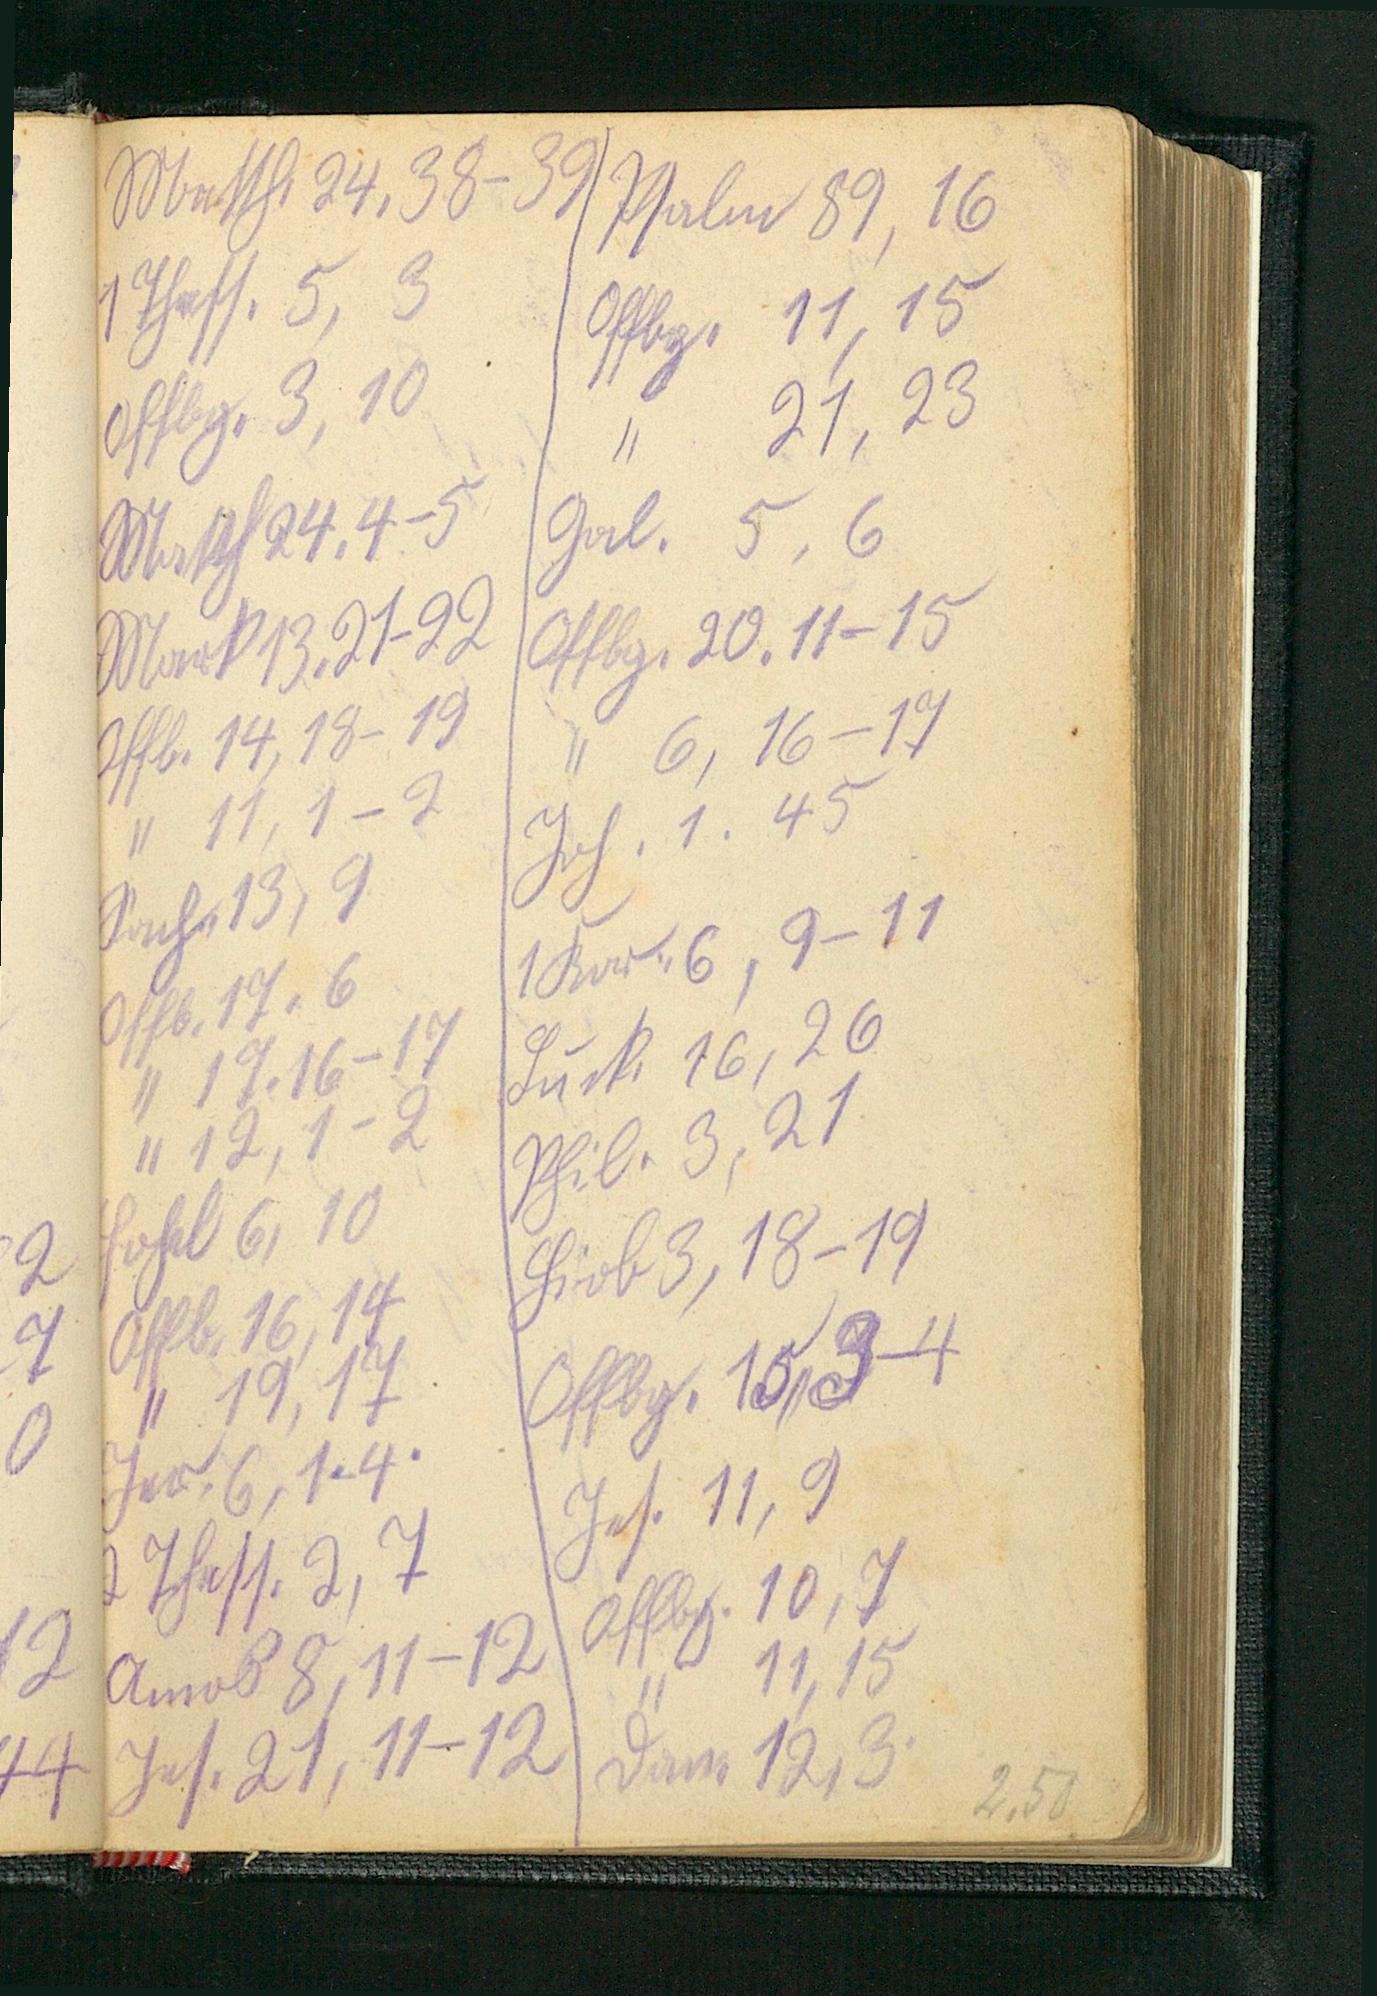 Matth. 24, 38-39
1 Thess. 5, 3
Offbg. 3, 10
Matth 24. 4-5
Mark 13. 21-22
Offb. 14, 18-19
" 11, 1-2
Sach. 13, 9
Offb. 17. 6
" 17. 16-17
" 12, 1-2
Hohel 6, 10
Offb. 16, 14
" 19, 17
Jer. 6, 1-4.
2 Thess. 2, 7
Amos 8, 11-12
Jes. 21, 11-12
Psalm 89, 16
Offbg. 11, 15
" 21, 23
Gal. 5, 6
Offbg. 20. 11-15
" 6, 16-17
Joh. 1. 45
1 Kor. 6, 9-11
Luck. 16, 26
Phil. 3, 21
Hiob 3, 18-19
Offbg. 15, 3-4
Jes. 11, 9
Offbg. 10, 7
" 11, 15
Dan. 12, 3.
2.50
2
7
0
12
44